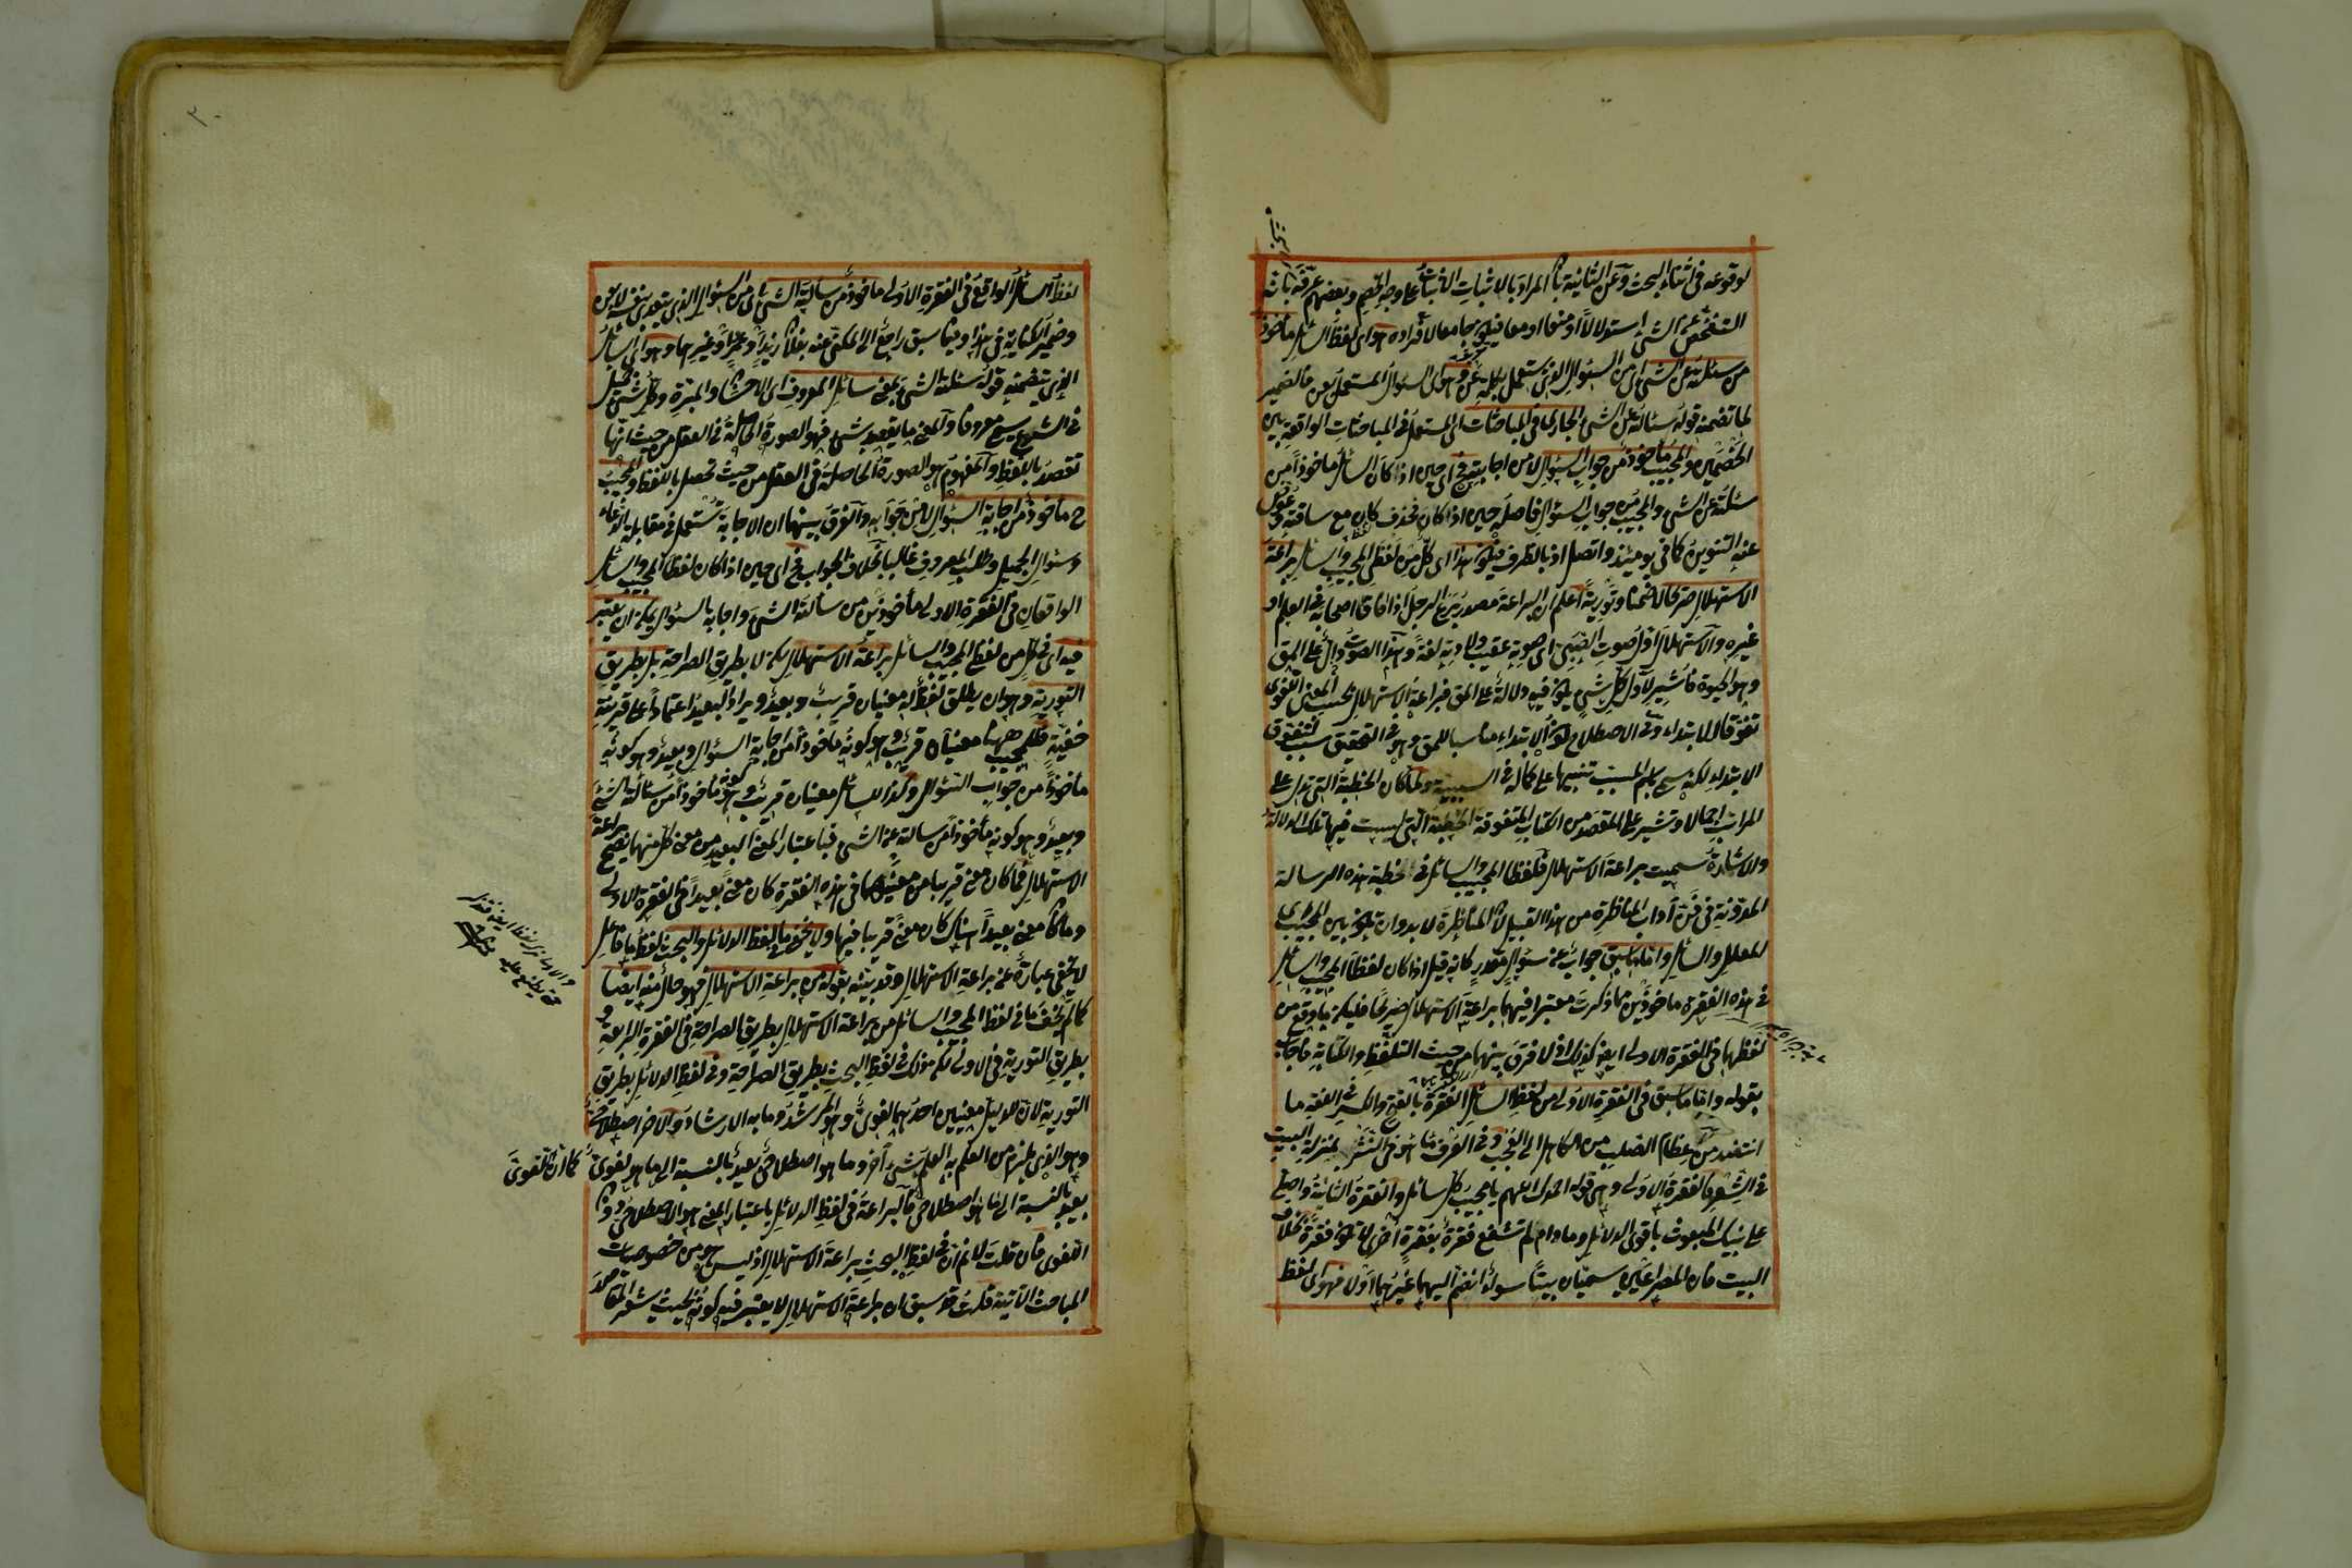 لوقوعه فى اثناء البحث وعن الثانية بان المراد بالاثبات الاثبات على وجه الخصم وبعضهم عرفه بانه
التفحص عن الشئ استدلالا او منعا او معا فيكون جامعا لافراده هو اى لفظ السائل مأخوذ
من سئلته عن الشئ اى من السؤال الذى يستعمل بكلمة عن وهو اى السؤال المستعمل بعن فالضمير
لما تضمنه قوله سئالته عن الشئ الجارى فى المباحثات اى المستعمل فى المباحثات الواقعة بين
الخصمين والمجيب مأخوذ من جواب السؤال لا من اجابته فح اى حين اذا كان السائل مأخوذا من
سئلته عن الشئ والمجيب من جواب السؤال فاصله حين اذا كان فحذف كان مع ساقته وعوض
عنه التنوين كما فى يومئذ واتصل اذ بالظرف فيكون هذا اى كل من لفظى المجيب والسائل براعة
الاستهلال صريحا لا ضمنا وتورية اعلم ان البراعة مصدر برع الرجل اذا فاق اصحابه فى العلم او
غيره والاستهلال اول صوت الصبى اى صوته عقيب ولادته لغة وهذا الصوت دال على المق
وهو الحيوة فاستعير لاول كل شئ يكون فيه دلالة على المق فبراعة الاستهلال بحسب المعنى اللغوى
تفوق الابتداء وفى الاصطلاح كون الابتداء مناسبا للمق وهو فى التحقيق سبب تفوق
الابتداء لكنه سمى باسم المسبب تنبيها على كماله فى السببية ولما كان الخطبة التى تدل على
المراتب اجمالا وتشير على المقصد من الكتاب المتفوقة الخطبة التى ليست فيها تلك الدلالة
والاشارة سميت براعة الاستهلال فلفظا المجيب والسائل فى خطبة هذه الرسالة
المدونة فى فن آداب المناظرة من هذا القبيل لان المناظرة لابد وان تكون بين المجيب اى
المعلل والسائل واما ما سبق جواب عن سؤال مقدر كانه قيل اذا كان لفظا المجيب والسائل
فى هذه الفقرة ماخوذين مما ذكرت معتبرا فيهما براعة الاستهلال صريحا فليكن ما وقع من
لفظهما فى الفقرة الاولى ايضا كذلك اذ لا فرق بينهما من حيث التلفظ والكتابة فاجاب
بقوله واما ما سبق فى الفقرة الاولى من لفظ السائل الفقرة بالفتح والكسر فى اللغة ما
انتضد من عظام الصلب من الكاهل الى العجب وفى العرف ما هو فى النثر بمنزلة البيت
فى الشعر فالفقرة الاولى وهى قوله الحمد لك اللهم يا مجيب كل سائل والفقرة الثانية واصلى
على نبيك المبعوث باقوى الدلائل وما دام لم تشفع فقرة بفقرة اخرى لا تكون فقرة بخلاف
البيت فان المصراعين يسميان بيتا سواء انضم اليهما غيرهما اولا فهو اى لفظ
لفظ السائل الواقع فى الفقرة الاولى ماخوذ من سالته الشئ اى من السؤال الذى يتعدى بنفسه لا بعن
وضمير الكناية فى هذا وفيما سبق راجع الى المكنى عنه بفلان زيدا او عمرا او غيرهما وهو اى السائل
الذى يتضمنه قوله سئلته الشئ بمعنى سائل المعروف اى الاحسان والمبرة وكل شئ جميل
فى الشرع يسمى معروفا والمعنى ما يقصد بشئ فهو الصورة الحاصلة فى العقل من حيث انها
تقصد باللفظ والمفهوم هو الصورة الحاصلة فى العقل من حيث تحصل باللفظ والمجيب
ح مأخوذ من اجابة السؤال لا من جوابه والفرق بينهما ان الاجابة تستعمل فى مقابلة الدعاء
وسئوال الجميل وطلب المعروف غالبا بخلاف الجواب فح اى حين اذا كان لفظا المجيب والسائل
الواقعان فى الفقرة الاولى مأخوذين من سألته الشئ واجابه بالسئوال يمكن ان يعتبر
فيه اى فى كل من لفظى المجيب والسائل براعة الاستهلال لكن لا بطريق الصراحة بل بطريق
التورية وهو ان يطلق لفظ له معنيان قريب وبعيد ويراد البعيد اعتمادا على قرينة
خفية فللمجيب ههنا معنيان قريب وهو كونه مأخوذا من اجابة السئوال وبعيد وهو كونه
مأخوذا من جواب السئوال وكذا للسائل معنيان قريب وهو كونه مأخوذا من سئالته الشئ
وبعيد وهو كونه مأخوذا من سالته عن الشئ فباعتبار المعنى البعيد من معنى كل منهما يصح براعة
الاستهلال فما كان معنى قريبا من معنييهما فى هذه الفقرة كان معنى بعيدا فى الفقرة الاولى
وما كان معنى بعيدا هناك كان معنى قريبا فيها ولا يخفى ما بلفظ الدلائل والبحث لفظ ما فاعل
لا يخفى عبارة عن براعة الاستهلال وقد بينه بقوله من براعة الاستهلال فهو حال منه ايضا
كما لم يخف ما فى لفظ المجيب والسائل من براعة الاستهلال بطريق الصراحة فى الفقرة الرابعة و
بطريق التورية فى الاولى لكن ذلك فى لفظ البحث بطريق الصراحة وفى لفظ الدلائل بطريق
التورية لان للدليل معنيين احدهما لغوى وهو المرشد وما به الارشاد والآخر اصطلاحى
وهو الذى يلزم من العلم به العلم بشئ آخر وما هو اصطلاحى بعيد بالنسبة الى ما هو لغوى كما ان اللغوى
بعيد بالنسبة الى ما هو اصطلاحى فالبراعة فى لفظ الدلائل باعتبار المعنى هو الاصطلاحى دون
اللغوى فان قلت لا نم ان فى لفظ البحث براعة الاستهلال اذ ليس هو من خصوصيات
المباحث الآتية قلت قد سبق ان براعة الاستهلال لا يعتبر فيه كونه بحيث يشعر المقاصد